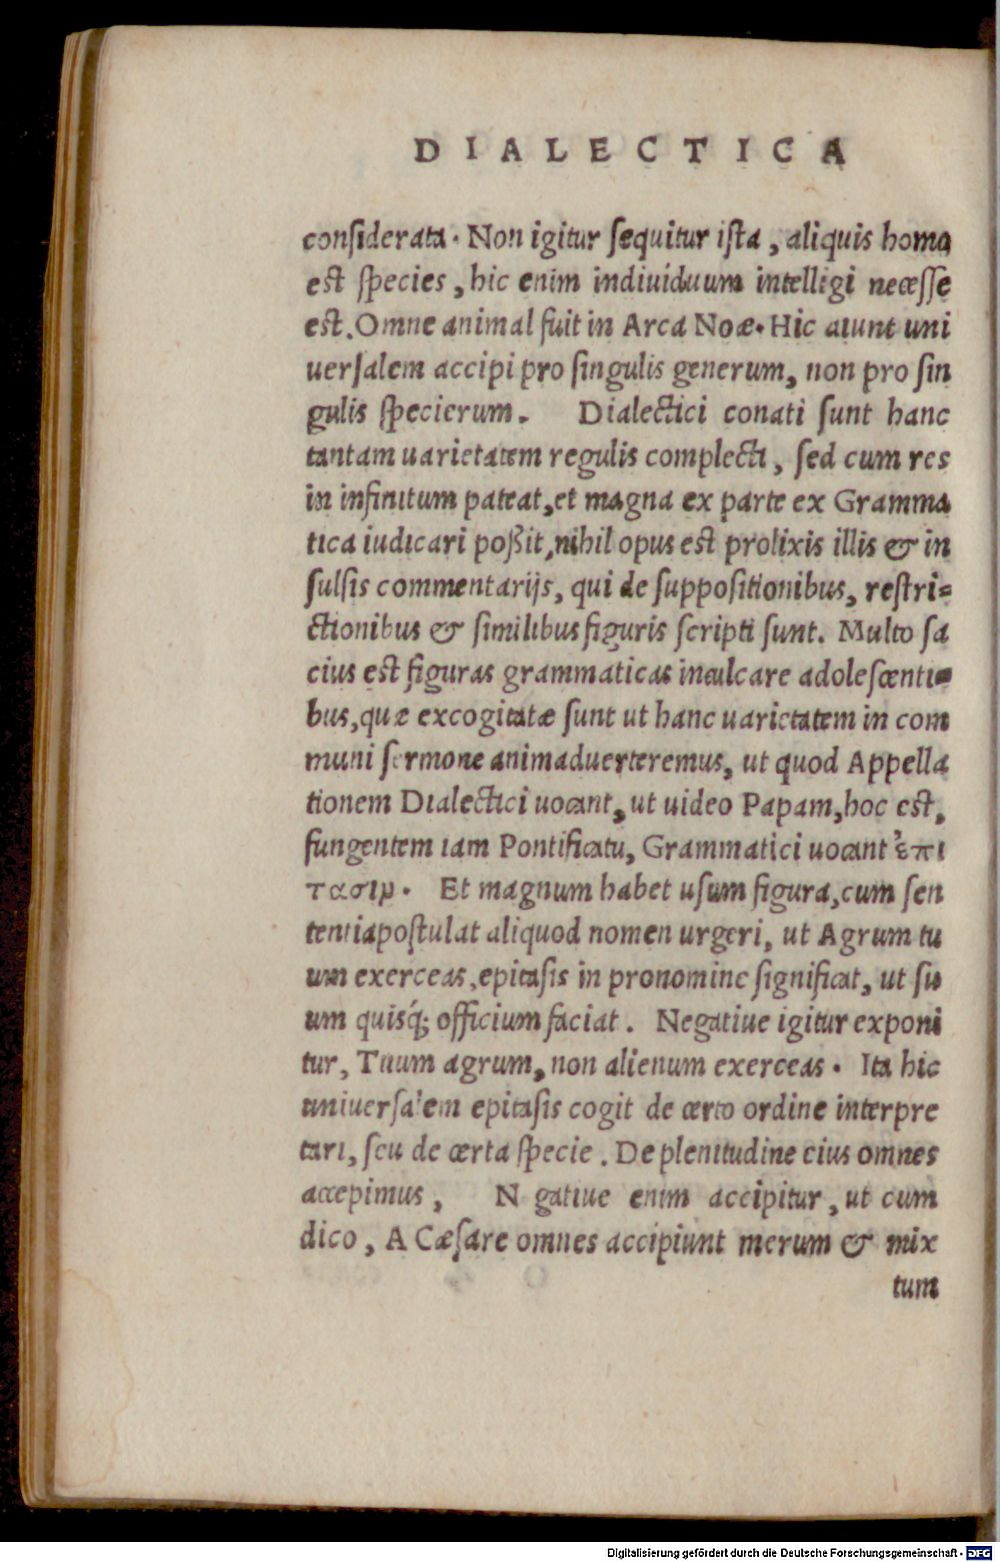 DIALECTICA
considerata. Non igitur sequitur ista, aliquis homo
est species, hic enim indiuiduum intelligi necesse
est. Omne animal fuit in Arca Noæ. Hic aiunt uni
uersalem accipi pro singulis generum, non pro sin
gulis specierum. Dialectici conati sunt hanc
tantam uarietatem regulis complecti, sed cum res
in infinitum pateat, et magna ex parte ex Gramma
tica iudicari poßit, nihil opus est prolixis illis & in
sulsis commentarijs, qui de suppositionibus, restri=
ctionibus & similibus figuris scripti sunt. Multo sa
cius est figuras grammaticas inculcare adolescenti=
bus, quæ excogitatæ sunt ut hanc uarietatem in com
muni sermone animaduerteremus, ut quod Appella
tionem Dialectici uocant, ut uideo Papam, hoc est,
fungentem iam Pontificatu, Grammatici uocant ἐπι
τασιμ. Et magnum habet usum figura, cum sen
tentia postulat aliquod nomen urgeri, ut Agrum tu
um exerceas, epitasis in pronomine significat, ut su
um quisq́; officium faciat. Negatiue igitur exponi
tur, Tuum agrum, non alienum exerceas. Ita hic
uniuersalem epitasis cogit de certo ordine interpre
tari, seu de certa specie. De plenitudine eius omnes
accepimus, N gatiue enim accipitur, ut cum
dico, A Cæsare omnes accipiunt merum & mix
tum
Digitalisierung gefördert durch die Deutsche Forschungsgemeinschaft - DFG